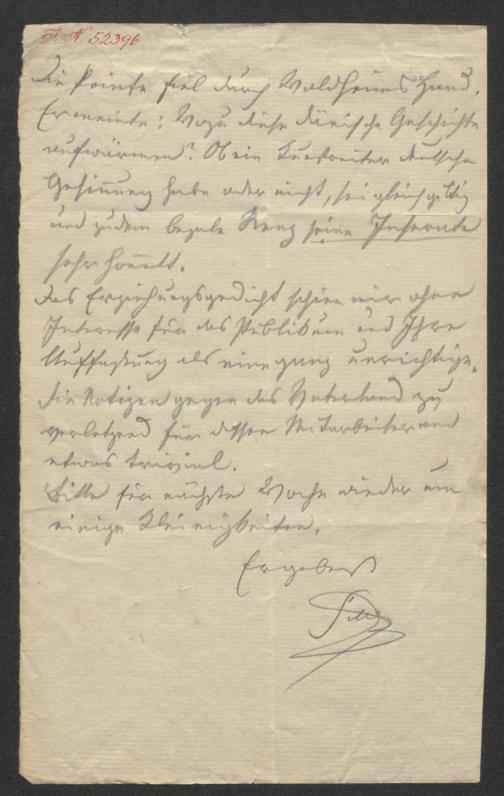 I. N. 52396
Die Pointe fiel durch Waldheims Hand.
Er meinte: Wozu diese dänische Geschichte
aufwärmen? Ob ein Kunstreiter deutsche
Gesinnung habe oder nicht, sei gleichgiltig
und zudem bezale Renz seine Inserate
sehr honett.
Das Erziehungsgedicht schien mir ohne
Interesse für das Publikum und Ihre
Auffassung als eine ganz unrichtige.
Die Notizen gegen das Vaterland zu
verletzend für dessen Mitarbeiter und
etwas trivial.
Bitte für nächste Woche wieder um
einige Kleinigkeiten.
Ergebenst